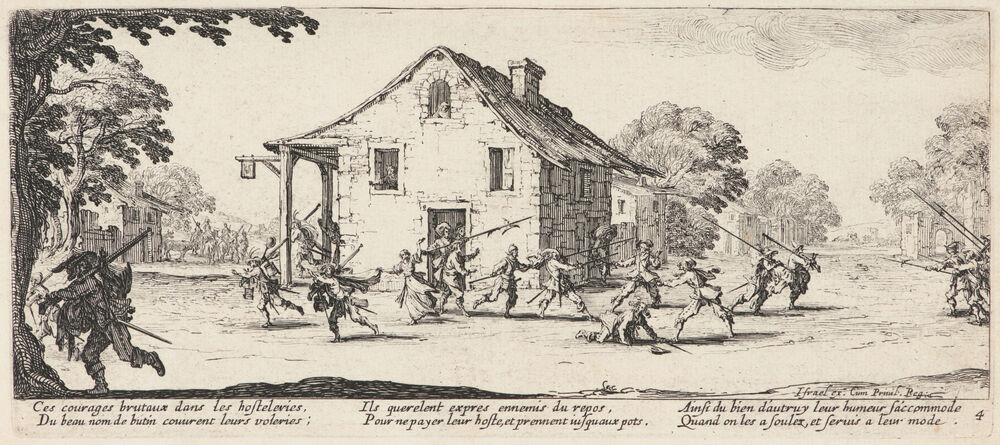 Israel ex. Cum Privil. Reg.
Ces courages brutaux dans les hosteleries,
Du beau nom de butin couurent leurs voleries ;
Ils querelent expres ennemis du repos,
Pour ne payer leur hoste, et prennent iusqu aux pots.
Ainsi du bien d'autruy leur humeur s'accommode
Quand on les a soulez, et seruis a leur mode .
4